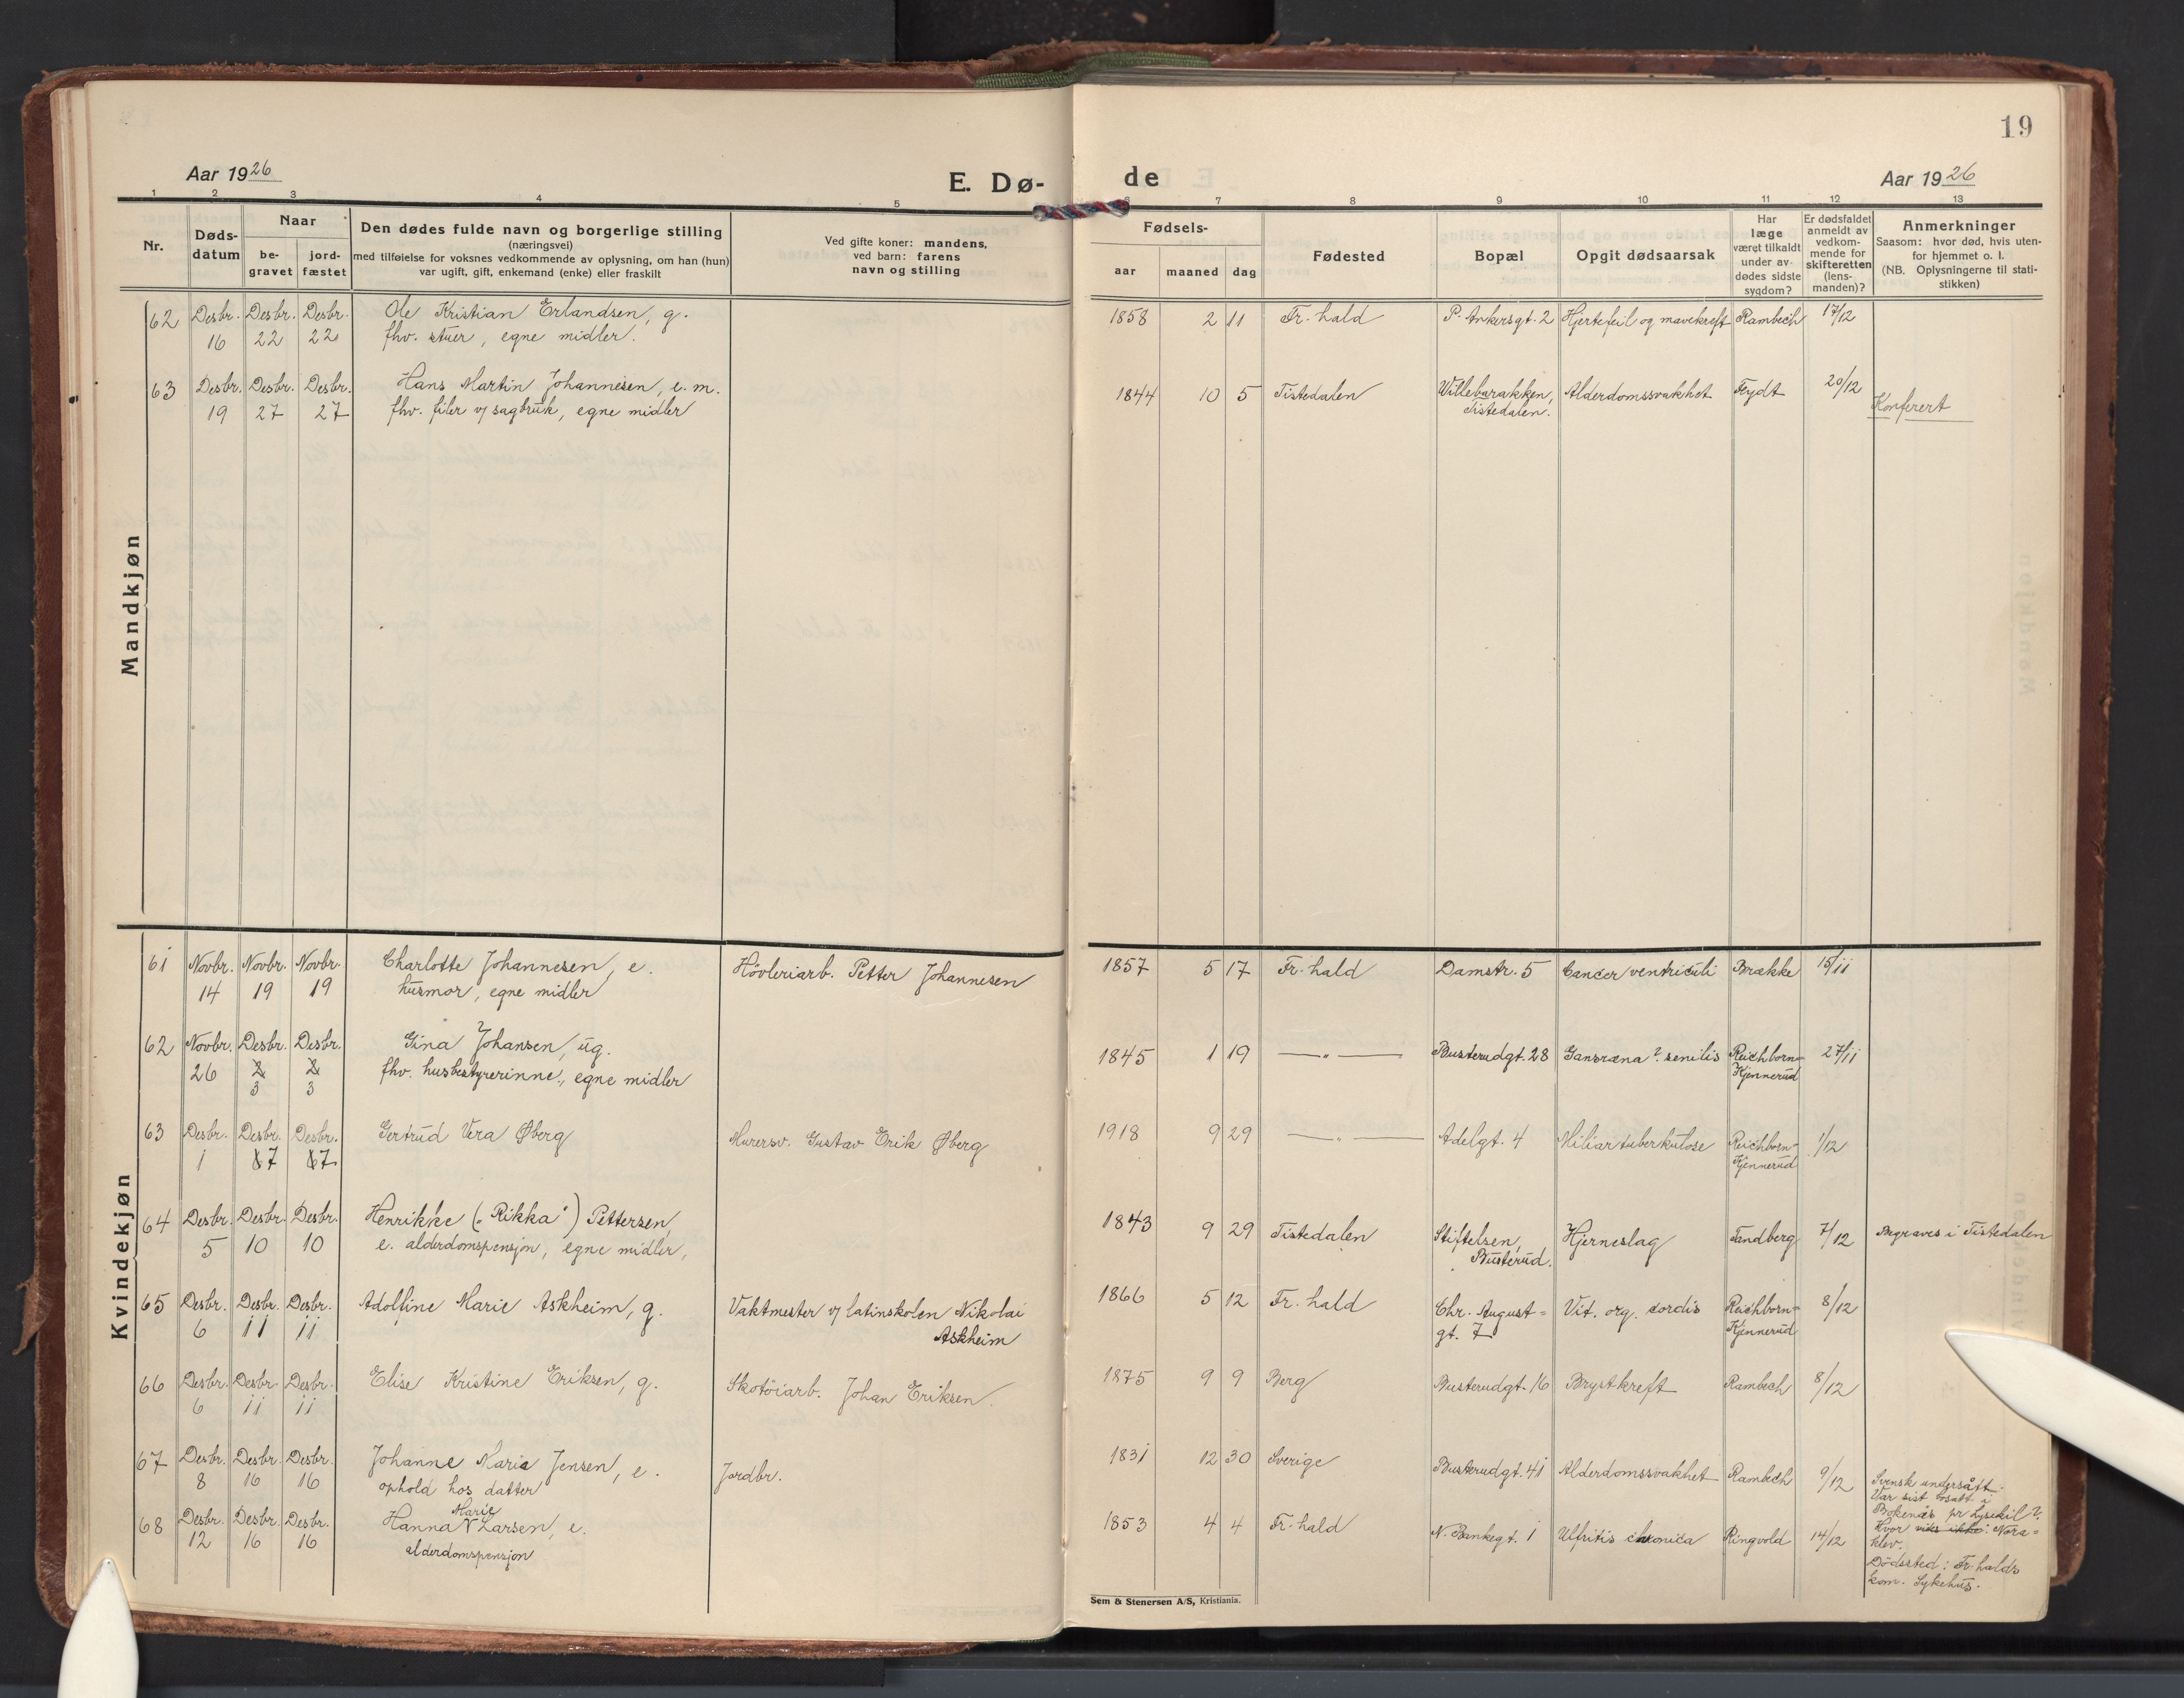 19
Aar 1926
E. Dø-
de
Aar 1926
1 2 3 4 5 6 7 8 9 10 11 12 13
Nr.
Døds-
datum
Naar
be-
gravet
jord-
fæstet
Den dødes fulde navn og borgerlige stilling
(næringsvei)
med tilføielse for voksnes vedkommende av oplysning, om han (hun)
var ugift, gift, enkemand (enke) eller fraskilt
Ved gifte koner: mandens,
ved barn: farens
navn og stilling
Fødsels-
aar maaned dag
Fødested
Bopæl
Opgit dødsaarsak
Har
læge
været tilkaldt
under av-
dødes sidste
sygdom?
Er dødsfaldet
anmeldt av
vedkom-
mende for
skifteretten
(lens-
manden)?
Anmerkninger
Saasom: hvor død, hvis uten-
for hjemmet o. l.
(NB. Oplysningerne til stati-
stikken)
Mandkjøn
62 Desbr. Desbr. Desbr. Ole Kristian Erlandsen, g. 1858 2 11 Fr.hald P. Ankersgt. 2 Hjertefeil og mavekreft Rambech 17/12
16 22 22 fhv. stuer, egne midler.
63 Desbr. Desbr. Desbr. Hans Martin Johannesen, e.m. 1844 10 5 Tistedalen Willebarakken, Alderdomssvakhet Feydt 20/12
19 27 27 fhv. filer v/ sagbruk, egne midler Tistedalen. Konferert
Kvindekjøn
61 Novbr. Novbr. Novbr. Charlotte Johannesen, e. Høvleriarb. Petter Johannesen 1857 5 17 Fr.hald Damstr. 5 Cancer ventriculi Brække 15/11
14 19 19 husmor, egne midler
62 Novbr. Desbr. Desbr. Gina Johansen, ug. 1845 1 19 —„— Busterudgt. 28 ? senilis Reichborn- 27/11
26 2 2 fhv. husbestyrerinne, egne midler Kjennerud
3 3
63 Desbr. Desbr. Desbr. Gertrud Vera Øberg Murersv. Gustav Erik Øberg 1918 9 29 —„— Adelgt. 4 Miliartuberkulose Reichborn- 1/12
1 67 67 Kjennerud
64 Desbr. Desbr. Desbr. Henrikke („Rikka") Pettersen, 1843 9 29 Tistedalen Stiftelsen, Hjerneslag Tandberg 7/12 Begraves i Tistedalen
5 10 10 e. alderdomspensjon, egne midler, Busterud.
65 Desbr. Desbr. Desbr. Adolfine Marie Askheim, g. Vaktmester v/ latinskolen Nikolai 1866 5 12 Fr.hald Chr. August- Vit. org. cordis Reichborn- 8/12
6 11 11 Askheim gt. 7 Kjennerud
66 Desbr. Desbr. Desbr. Elise Kristine Eriksen, g. Skotöiarb. Johan Eriksen. 1875 9 9 Berg Busterudgt. 16 Brystkreft Rambech 8/12
6 11 11
67 Desbr. Desbr. Desbr. Johanne Maria Jensen, e. Jordbr. 1831 12 30 Sverige Busterudgt. 41 Alderdomssvakhet Rambech 9/12
8 16 16 ophold hos datter
Svensk undersått.
Var sist bosatt i
Bokenäs pr Lysekil?.
Hvor viks ikke: Nora-
klev.
68 Desbr. Desbr. Desbr. Hanna Marie Larsen, e. 1853 4 4 Fr.hald N. Bankegt. 1 chronica Ringvold 14/12
12 16 16 alderdomspensjon
Dödssted: Fr.halds
kom. Sykehus.
Sem & Stenersen A/S, Kristiania.